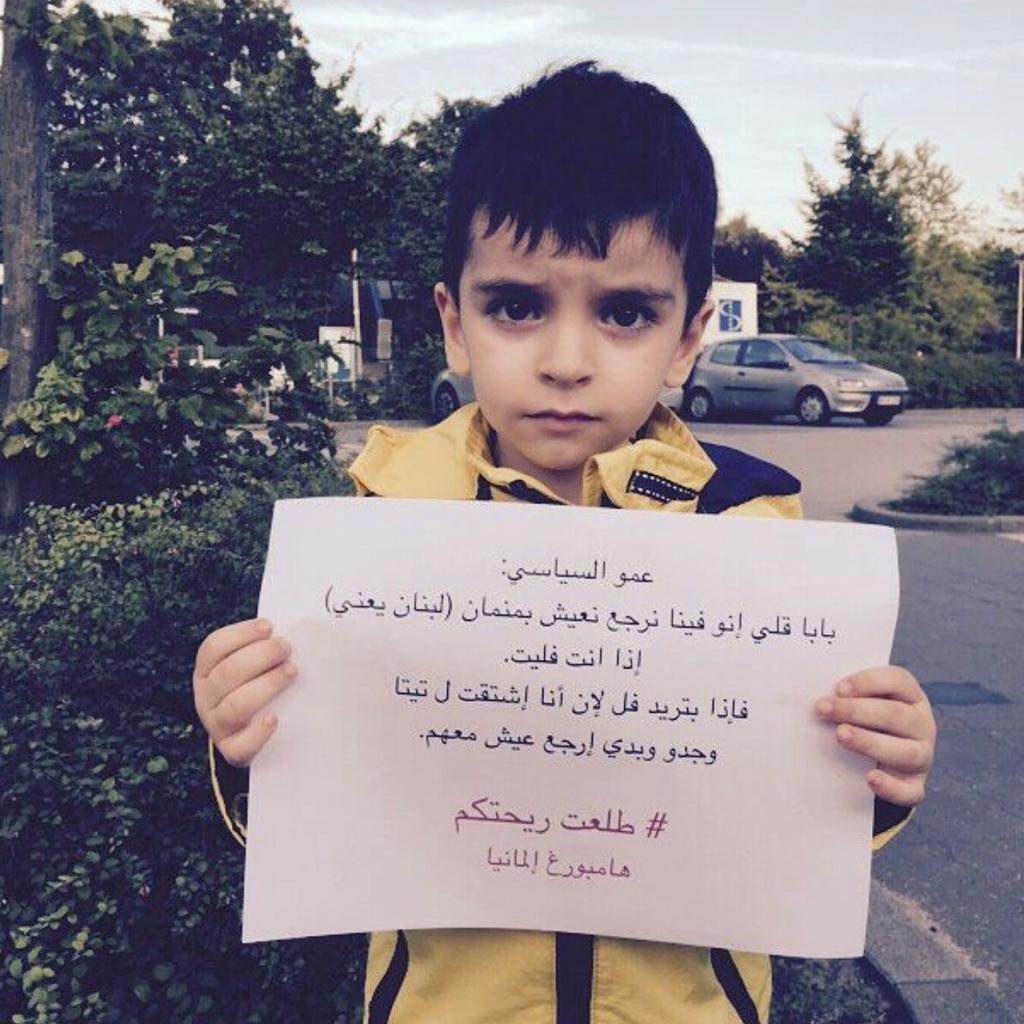 عمو السياسي:
بابا قلي إنو فينا نرجع نعيش بمنمان (لبنان يعني)
إذا انت فليت.
فإذا بتريد فل لإن أنا إشتقت ل تيتا
وجدو وبدي إرجع عيش معهم.
# طلعت ريحتكم
هامبورغ إلمانيا